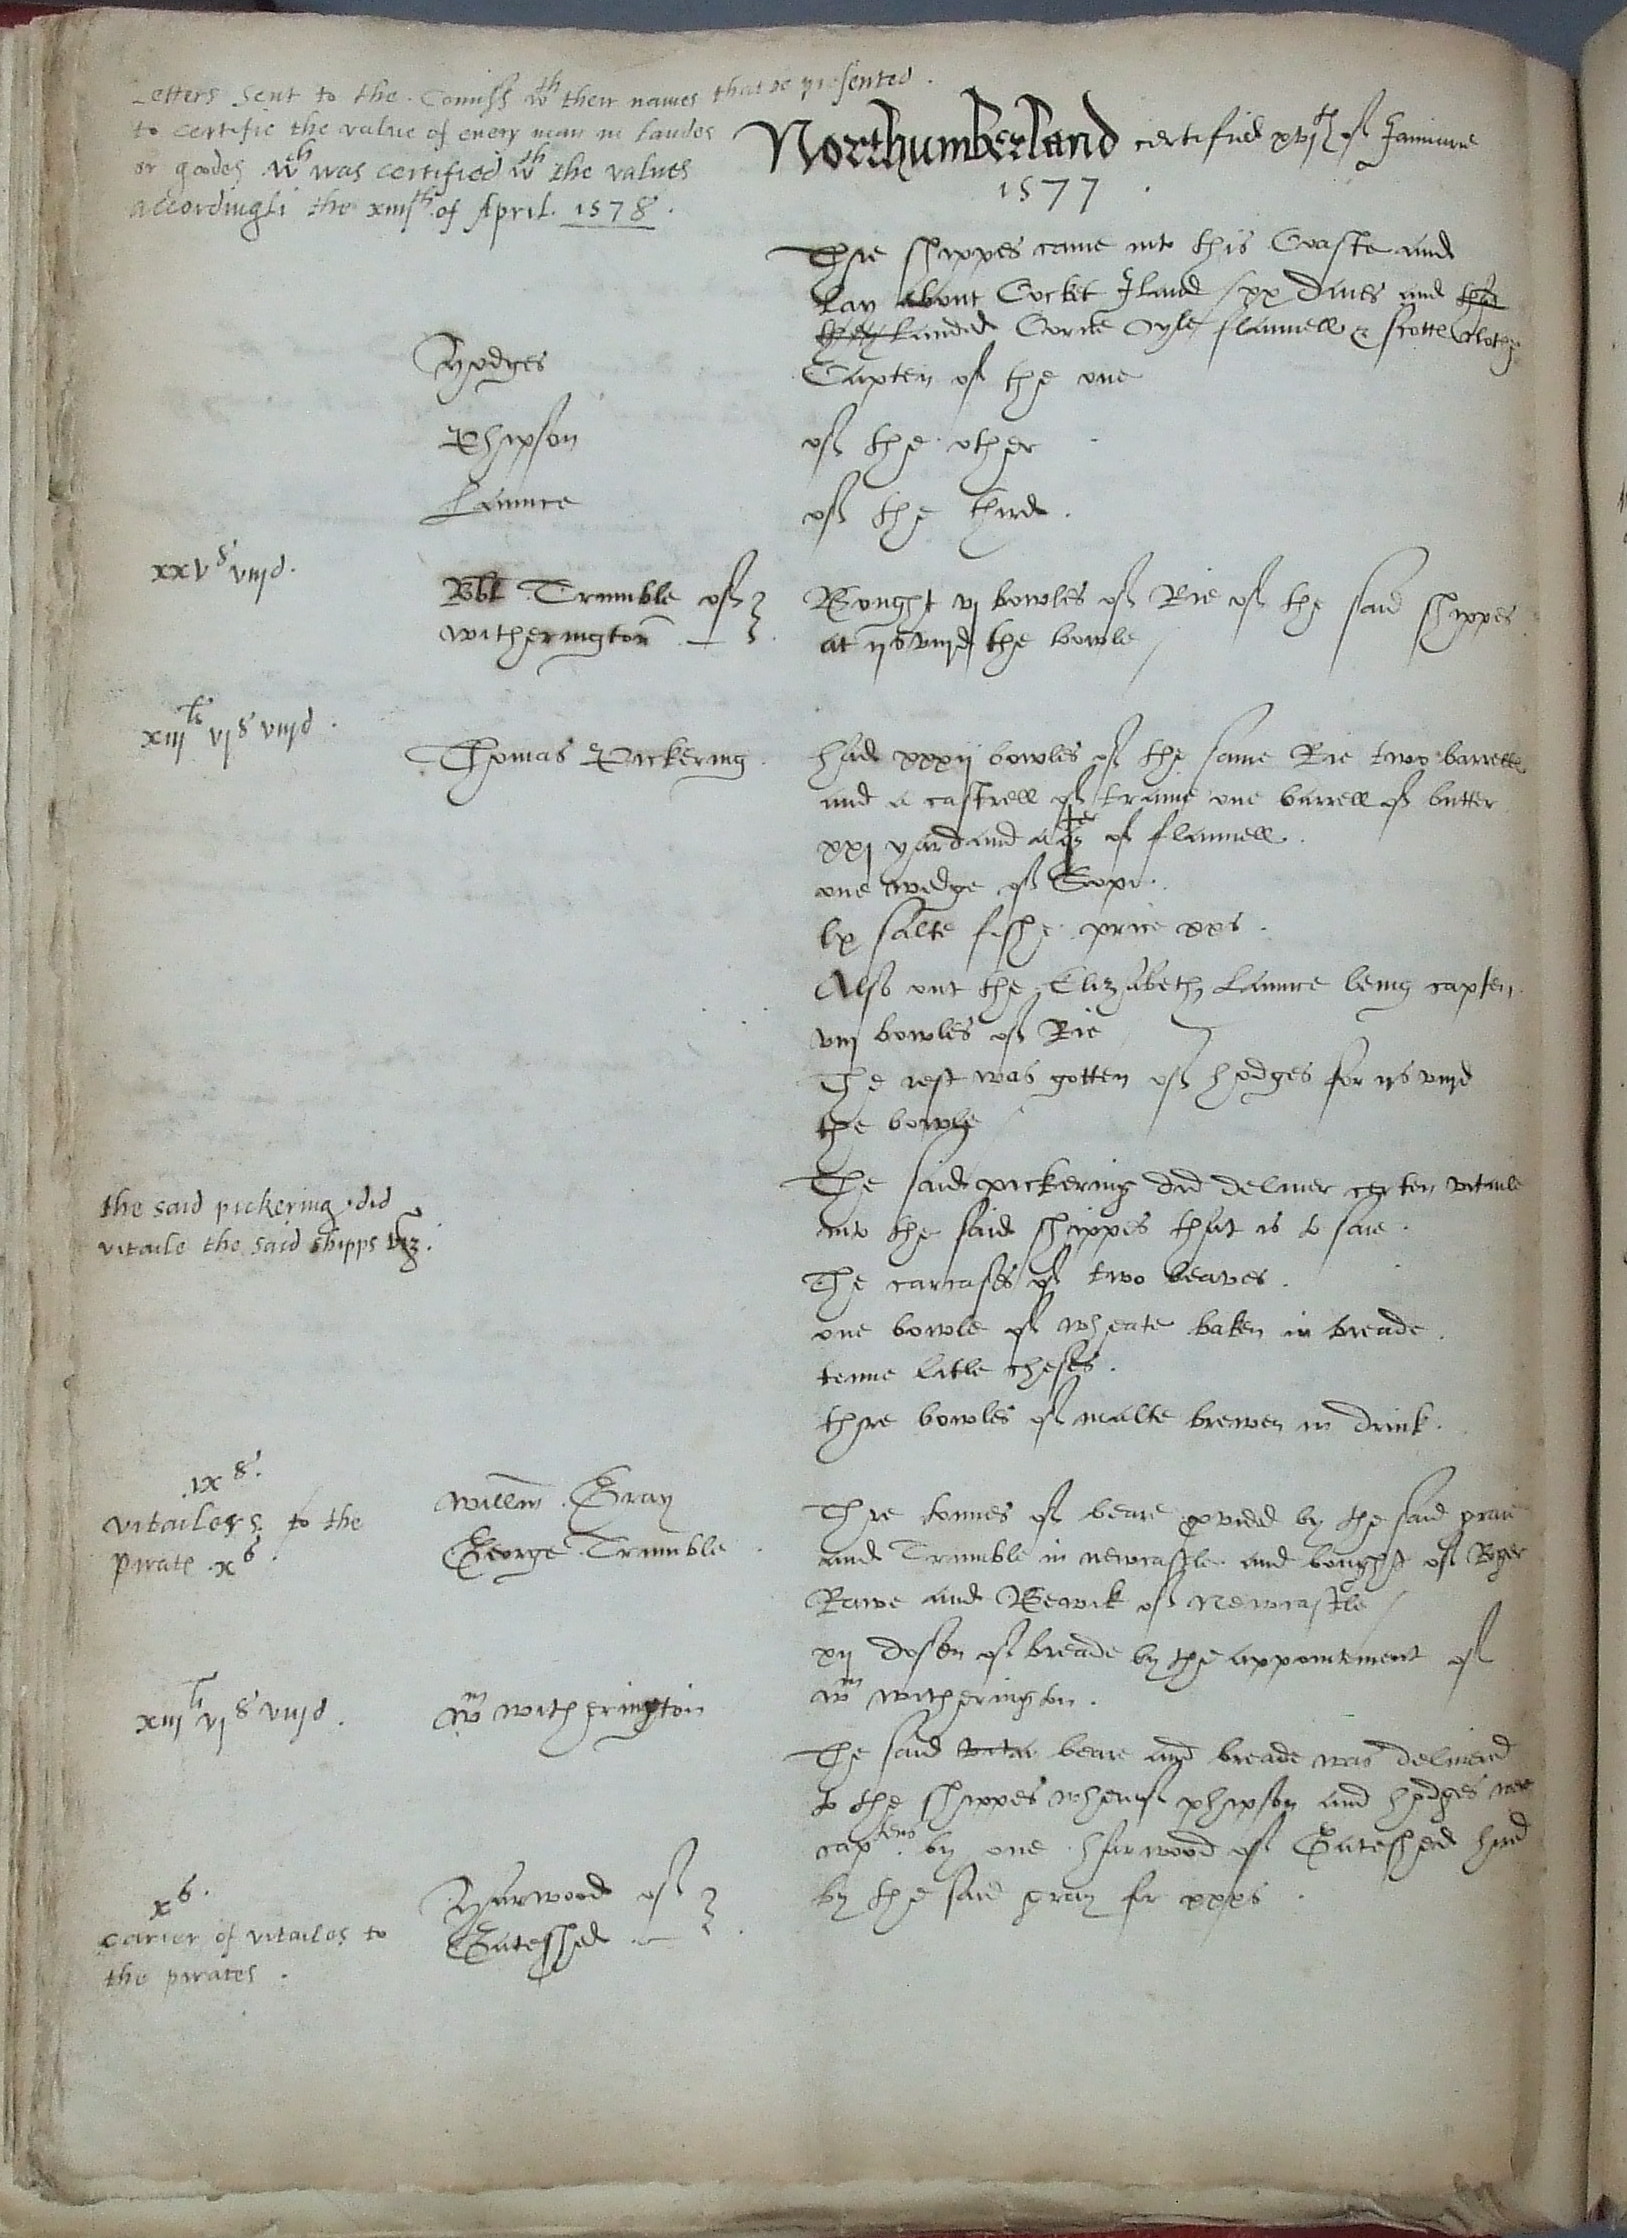 Letters sent to the Comiss wth their names that be presented.
to certifie the value of every man in landes
or goodes wch was certified wth the values
accordingli the xiiijth of April. 1578.
Northumberland certified xvjth of Januarie
1577
Thre shippes came into this Coaste and
lay about Cocket Iland xx daies and
they landed Corne Oyle flannell & Scotte Clothe
Hodges Capten of the one
Phipson of the other
Launce of the third.
xxvs viijd.
Rbt Trumble of
witherington
Bought vj bowles of Rie of the said shippes
at ijs viijd the bowle
xiijli vjs viijd.
Thomas Pickering.
had xxxij bowles of the same Rie two barrells
and a castrell of traine one barrell of butter
xxj yard and a of flannell.
one wedge of Sope.
lx salte fishe price xxs.
Also out the Elizabeth, Launce being capten
viij bowles of Rie
The rest was gotten of hodges for ijs viijd
the bowle
the said pickering did
vitaile the said shipps viz.
The said pickering did deliver certen vitaile
into the said shippes that is to saie.
The carcases of two beaves.
one bowle of wheate baken in breade.
tenne litle cheses.
thre bowles of malte brewen in drink.
ixs.
vitailers to the
pirate xs.
willm Gray
George Trumble
Thre tonnes of beare provided by the said graie
and Trumble in newcastle and bought of Roger
Rawe and Bewik of Newcastle
xij dosen of breade by the appointment of
wm witherington.
xiijli vjs viijd.
wm witherington
The said beare and breade was delivered
to the shippes wherof phipson and hodges were
captens by one harwood of Gateshed hired
by the said gray for xxxs.
xs.
carier of vitailes to
the pirates.
Harwood of
Gateshed